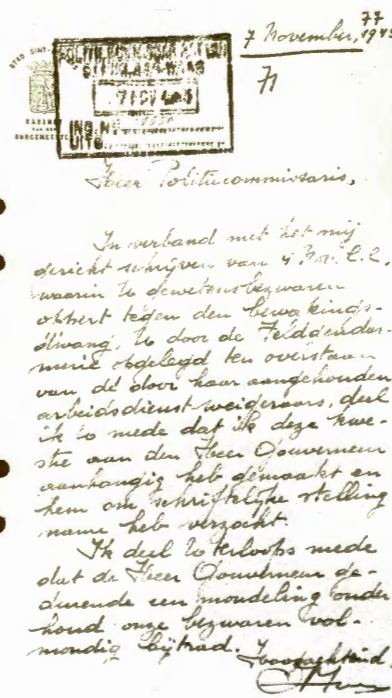 77
7 November, 1943
71
STAD SINT-
KABINET
VAN DEN
BURGEMEESTER
POLITIE
SINT-NIKLAAS-WAAS
ING. Nr
UITG.
Heer Politiecommissaris,
In verband met het mij
gericht schrijven van 4 Nov. l.l.
waarin U gewetensbezwaren
oppert tegen den bewakings-
dwang, U door de Feldgendar-
merie opgelegd ten overstaan
van de door haar aangehouden
arbeidsdienstweigeraars, deel
ik U mede dat ik deze kwe-
stie aan den Heer Gouverneur
aanhangig heb gemaakt en
hem om schriftelijke stelling
name heb verzocht.
Ik deel U terloops mede
dat de Heer Gouverneur ge-
durende een mondeling onder
houd onze bezwaren vol-
mondig bijtrad.
Hoogachtend,